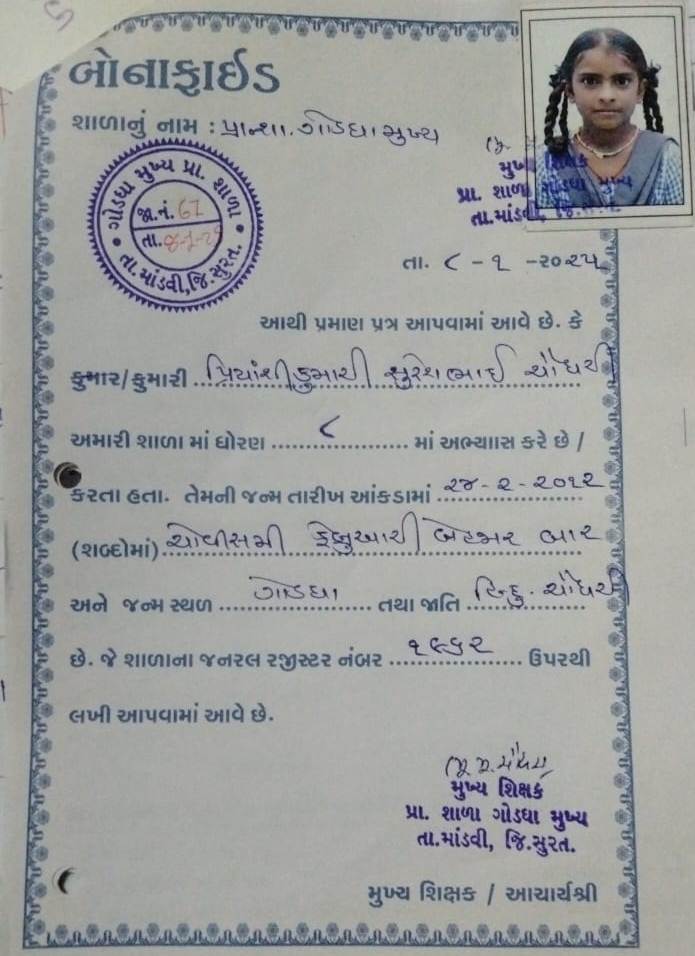 બોનાફાઇડ
શાળાનું નામ : પ્રા.શા. ગોડધા મુખ્ય
મુખ્ય શિક્ષક
પ્રા. શાળા ગોડધા મુખ્ય
તા.માંડવી, જિ.
ગોડધા મુખ્ય પ્રા. શાળા
જા.નં. 67
તા.
તા.માંડવી, જિ.સુરત.
તા. ૮ - ૧ - ૨૦૨૫
આથી પ્રમાણ પત્ર આપવામાં આવે છે. કે
કુમાર/કુમારી પ્રિયાંશીકુમારી સુરેશભાઈ ચૌધરી
અમારી શાળા માં ધોરણ ૮ માં અભ્યાસ કરે છે /
કરતા હતા. તેમની જન્મ તારીખ આંકડામાં ૨૪-૨-૨૦૧૨
(શબ્દોમાં) ચોવીસમી ફેબ્રુઆરી બેહજાર બાર
અને જન્મ સ્થળ ગોડધા તથા જાતિ હિન્દુ. ચૌધરી
છે. જે શાળાના જનરલ રજીસ્ટર નંબર ૧૯૬૨ ઉપરથી
લખી આપવામાં આવે છે.
મુખ્ય શિક્ષક
પ્રા. શાળા ગોડધા મુખ્ય
તા.માંડવી, જિ.સુરત.
મુખ્ય શિક્ષક / આચાર્યશ્રી